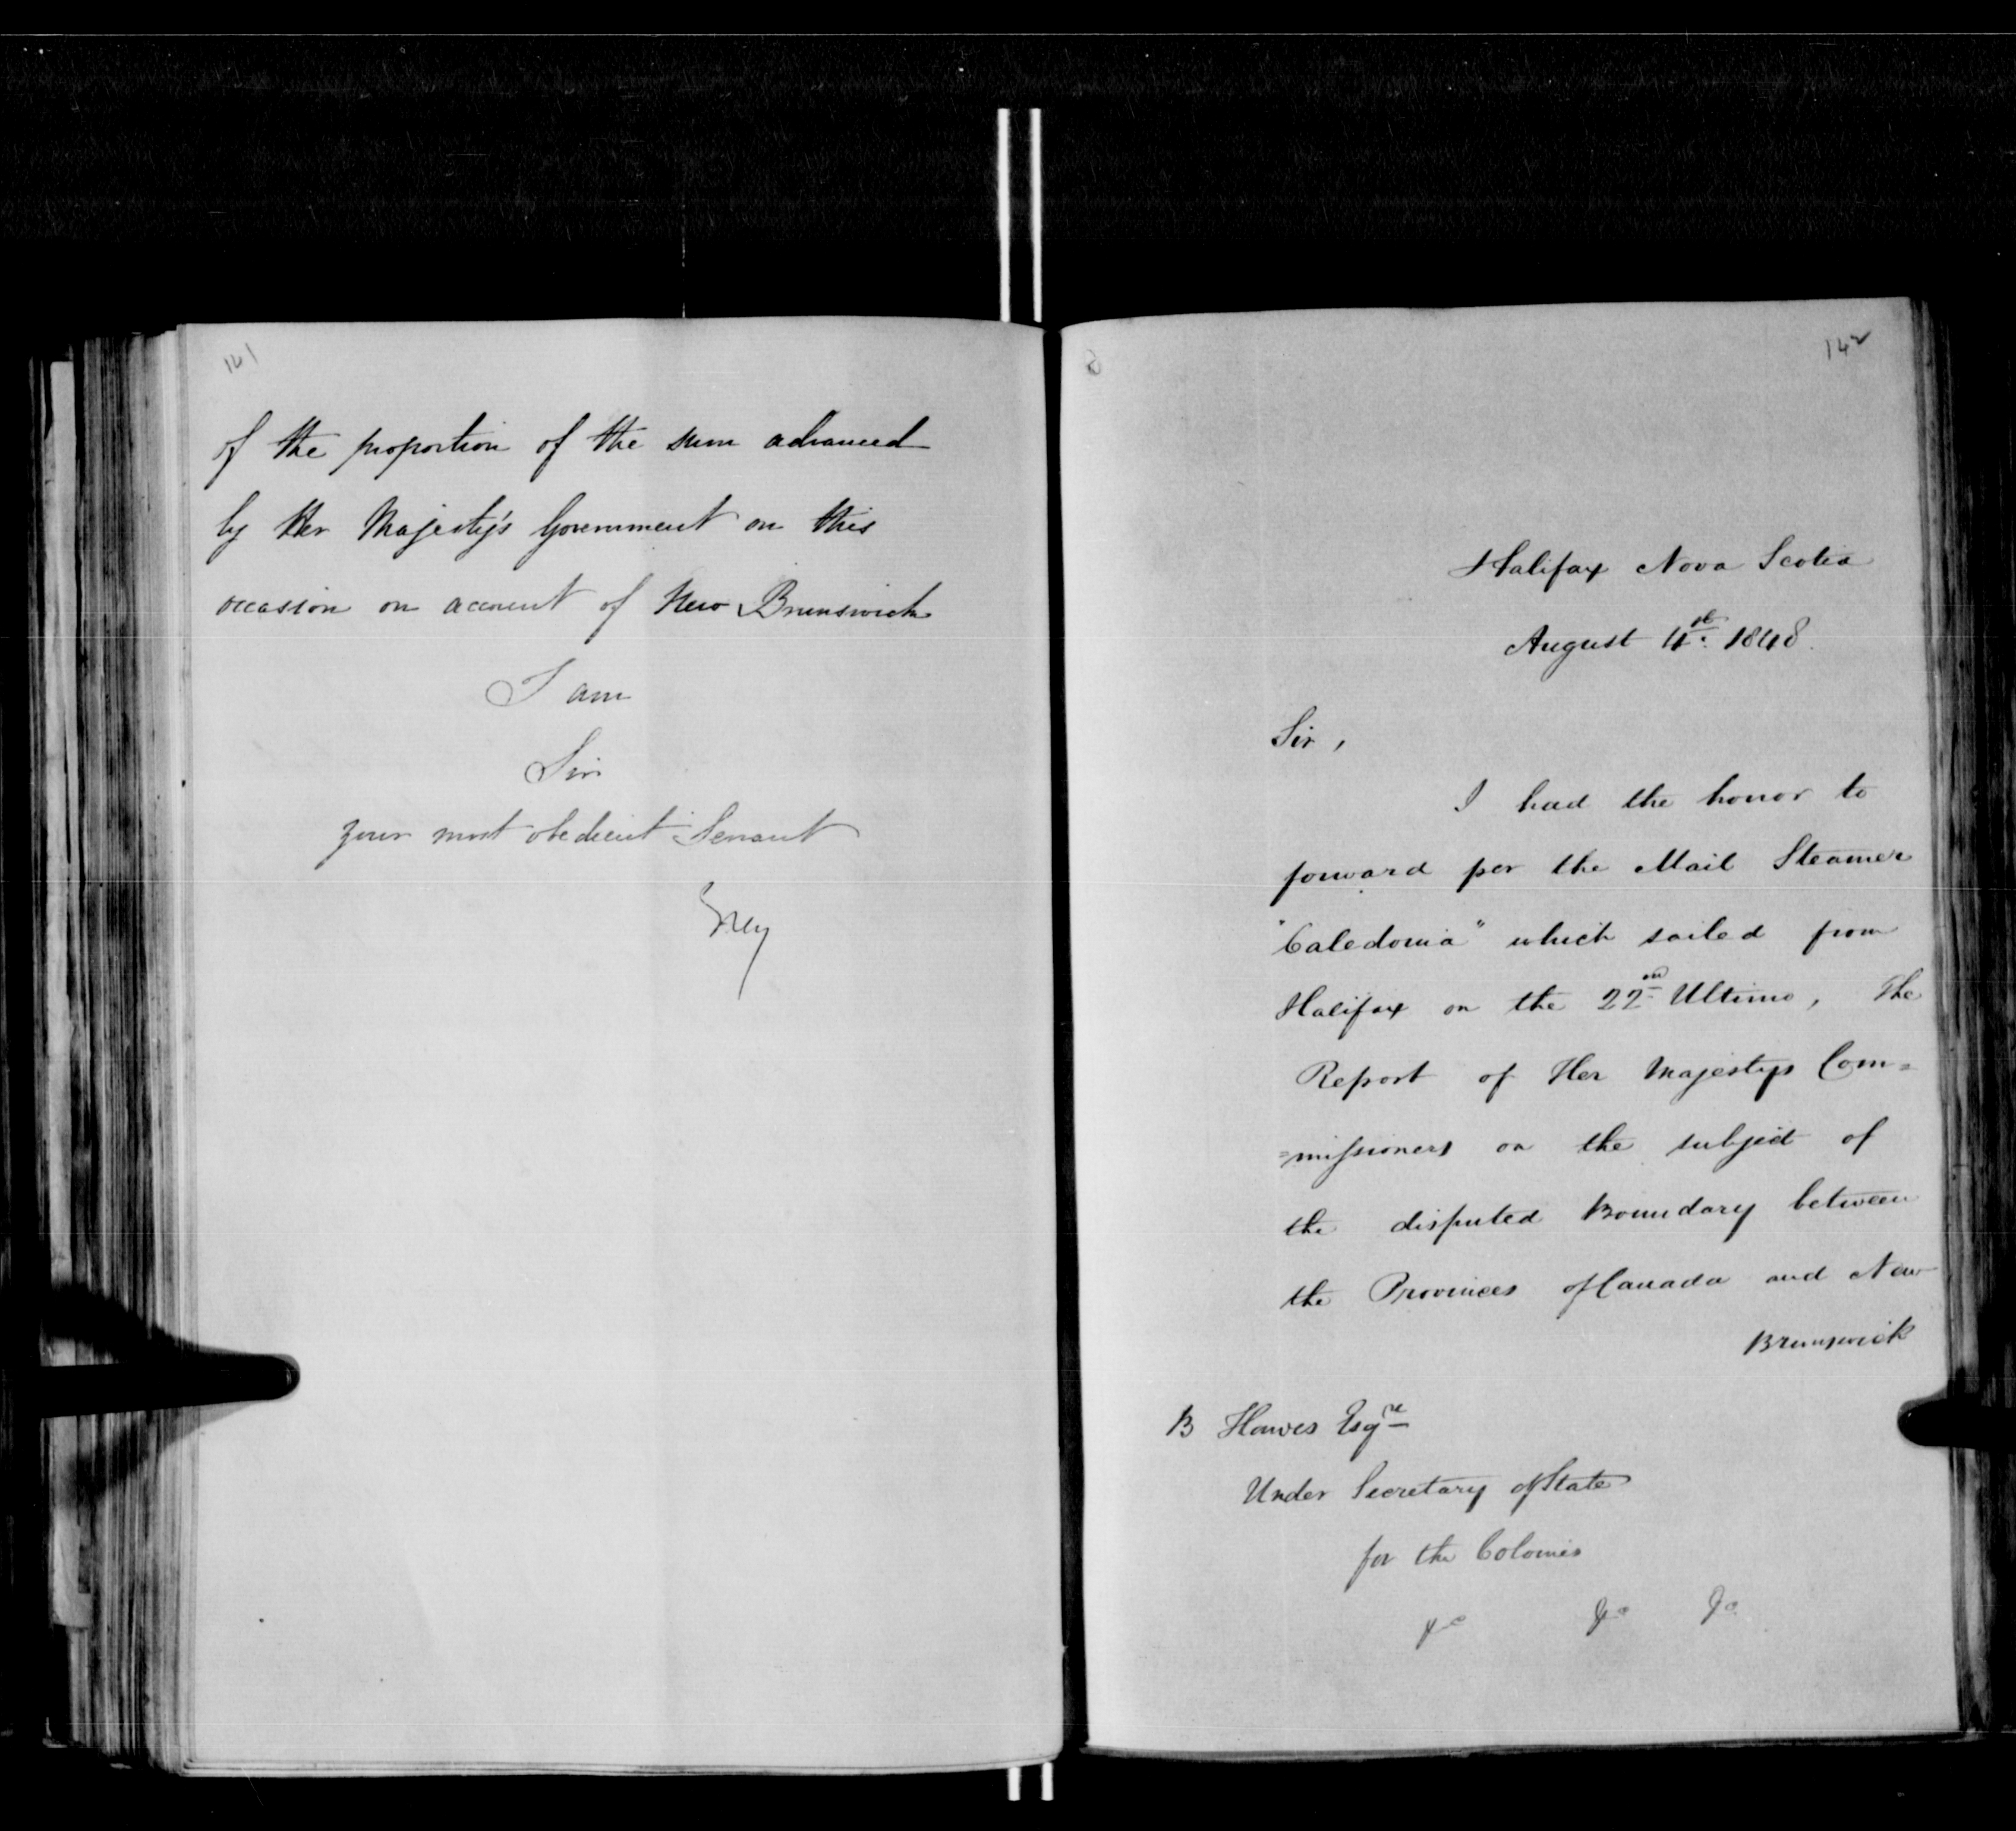 141
of the proportion of the sum advanced
by Her Majesty's Government on this
occasion on account of New Brunswick
I am
Sir
your most obedient Servant
Grey
142
Halifax Nova Scotia
August 4th. 1848.
Sir,
I had the honor to
forward per the Mail Steamer
"Caledonia" which sailed from
Halifax on the 22nd Ultimo, The
Report of Her Majestys Com=
=missioners on the subject of
the disputed Boundary between
the Provinces of Canada and New
Brunswick
B Hawes Esqre
Under Secretary of State
for the Colonies
&c &c &c